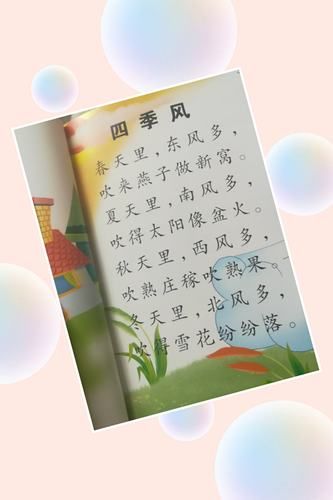 四季风
春天里，东风多，
吹来燕子做新窝。
夏天里，南风多，
吹得太阳像盆火。
秋天里，西风多，
吹熟庄稼吹熟果。
冬天里，北风多，
吹得雪花纷纷落。